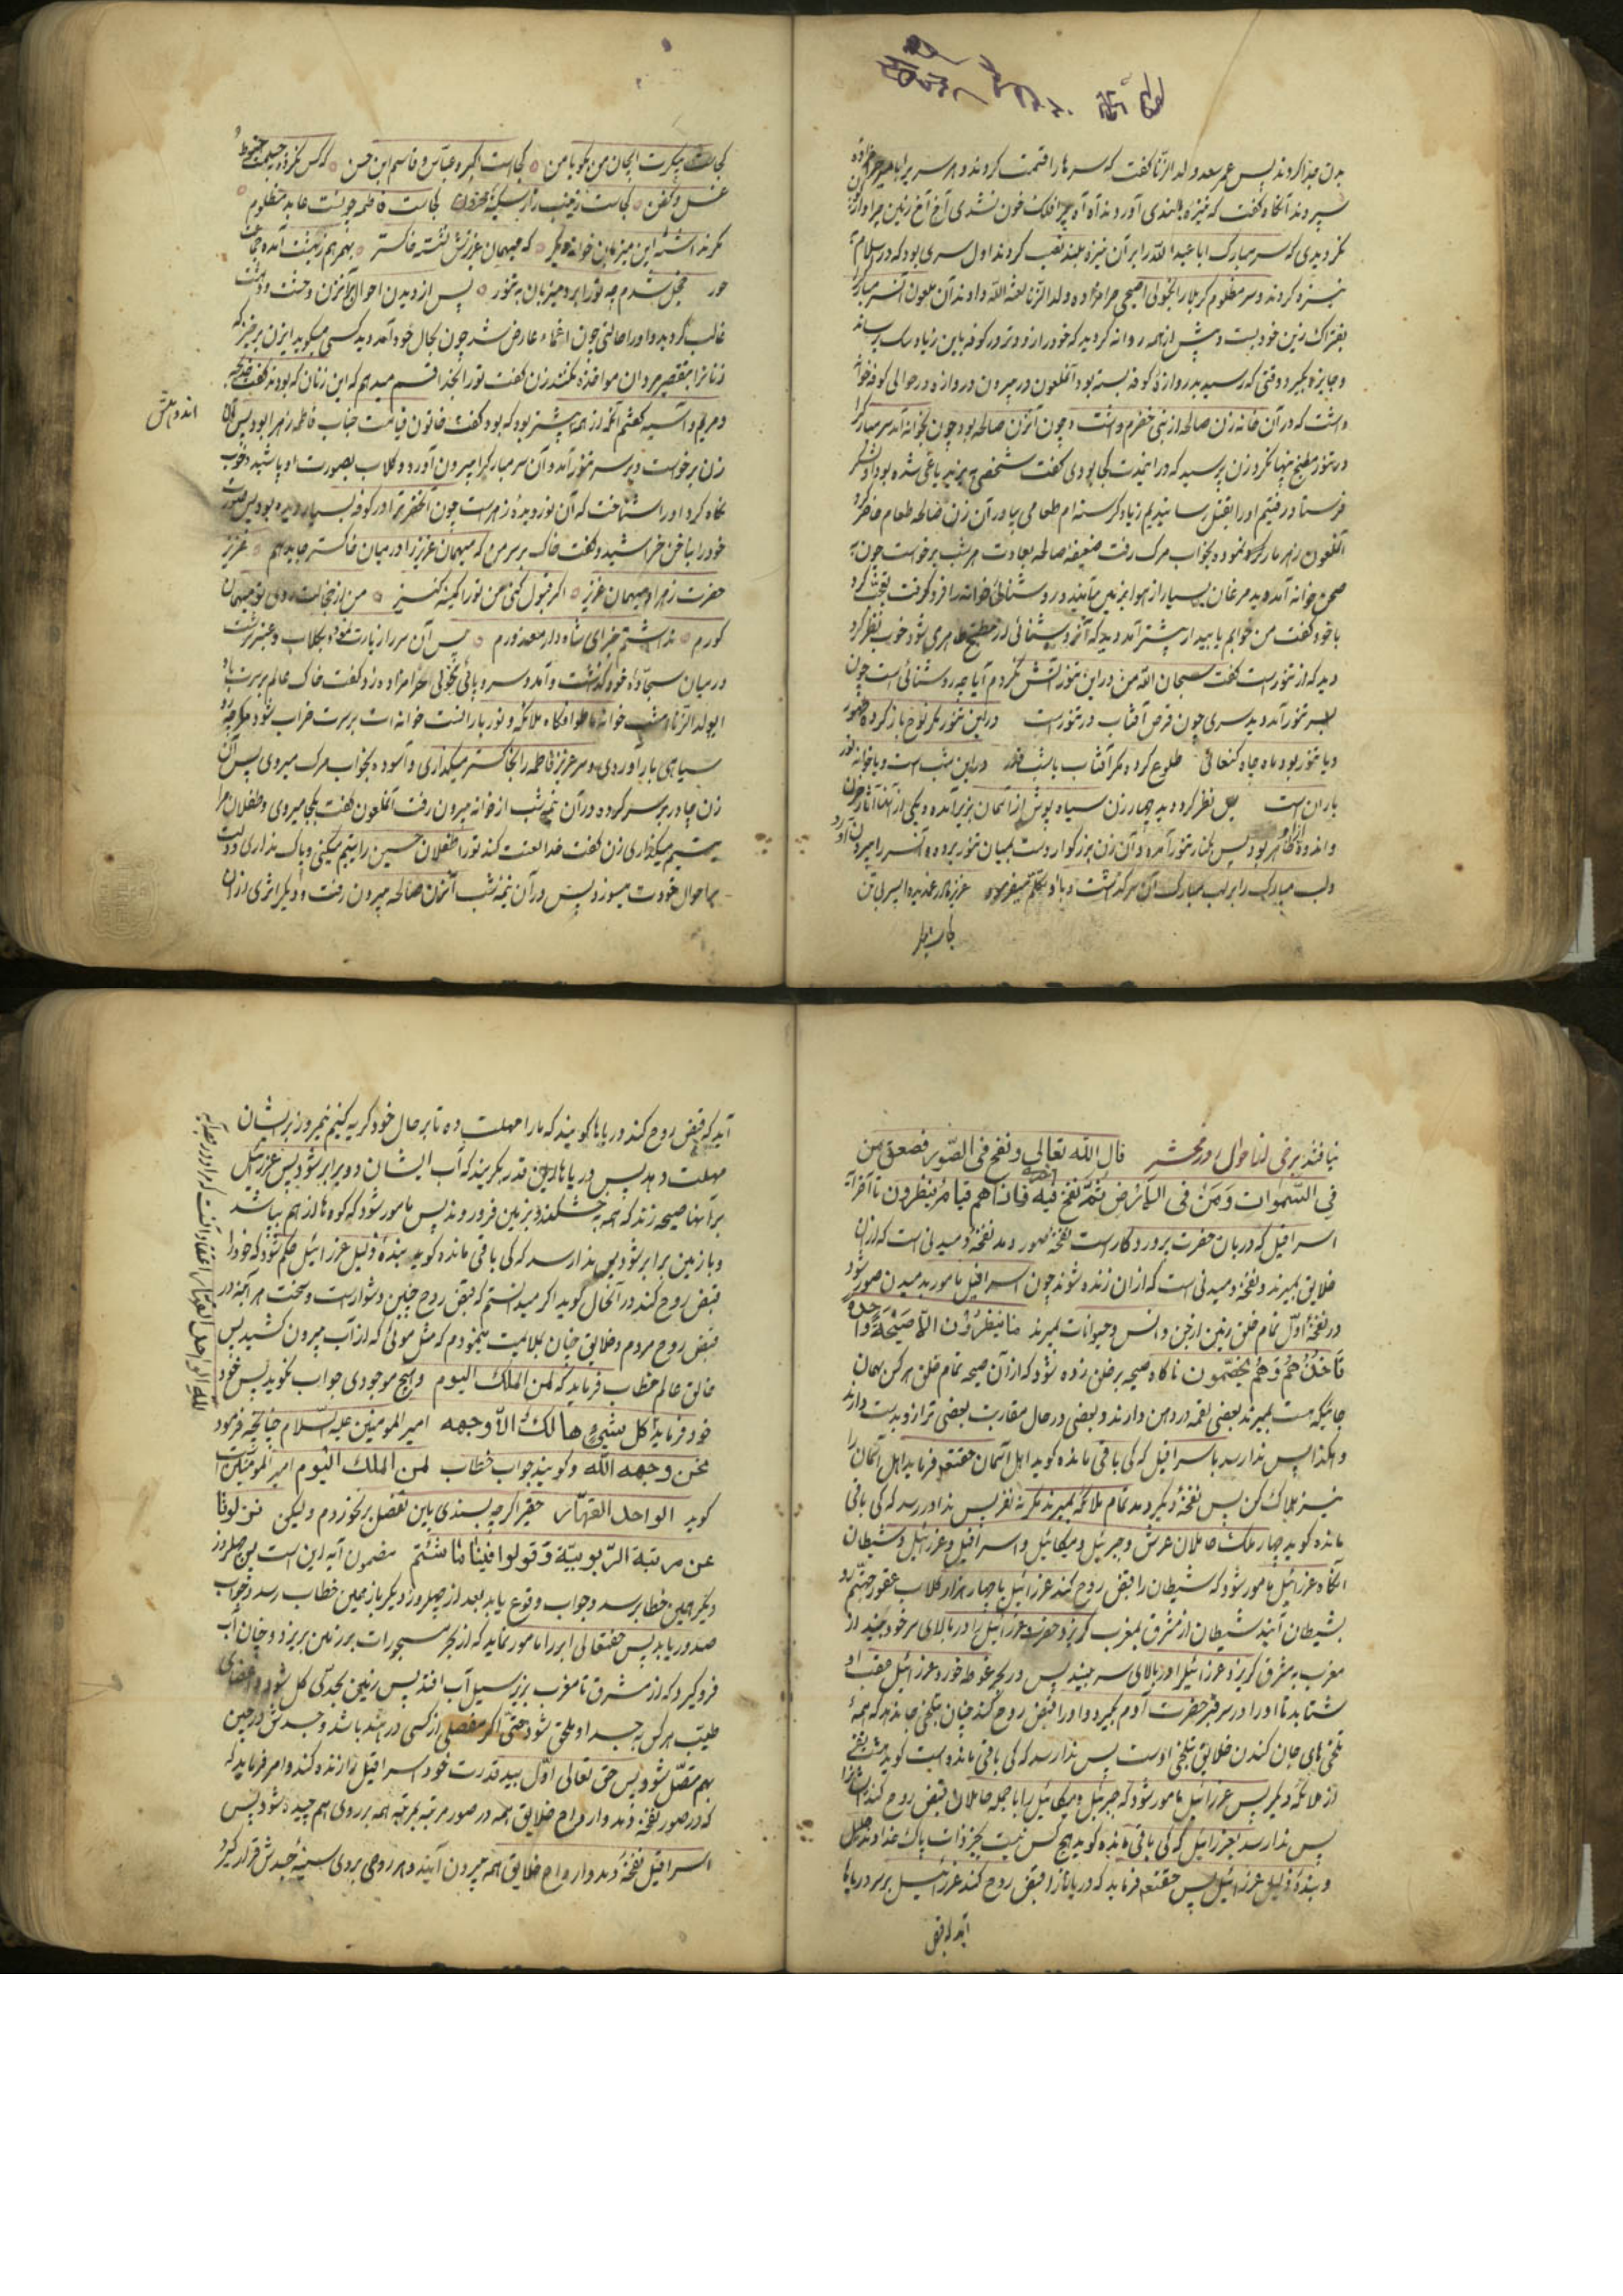 بدن جدا کردند پس عمر سعد ولد الزنا گفت که سرها را قسمت کردند و هر سر برا
سپردند آنگاه گفت که نیزه بلندی آوردند آه آه چرا فلک خون نشدی آخ آخ زمین چرا
نگردیدی که سر مبارک ابا عبد الله را بر آن نیزه بلند نصب کردند اول سری بود که در اسلام
نیزه کردند و سر مظلوم کربلا را بخولی اصبحی حرامزاده ولد الزنا لعنه الله دادند آن ملعون آنسر مبارک
بفتراک زین خود بست و پیش از همه روانه گردید که خود را زودتر در کوفه باین زیاد سگ برساند
و جایزه بگیرد وقتی که رسید بدروازه کوفه بسته بود آنملعون در بیرون دروازه در حوالی کوفه خانه
داشت که در آن خانه زن صالحه از بنی خضرم داشت و چون آنزن صالحه بود چون بخوانه آمد سر مبارک
در تنور مطبخ پنهان کرد زن پرسید که در این مدت کجا بودی گفت شخصی به یزید یاغی شده بود
فرستاد رفتیم او را بقتل رسانیدیم زیاد گرسنه ام طعامی بیاور آن زن صالحه طعام حاضر کرد
آنملعون زهر مار کرده نموده بخواب مرگ رفت ضعیفه صالحه بعادت هر شب برخواست چون
صحن خوانه آمد دید مرغان بسیار از هوا بزمین میآیند و روشنائی خوانه را فرو گرفت تعجب کرد
با خود گفت من خوابم یا بیدار پیشتر آمد دید که آن روشنائی از مطبخ ظاهر می شود خوب نظر کرد
دید که از تنور است گفت سبحان الله من در این تنور آتش نکردم آیا چه روشنائی است چون
بسر تنور آمد دید سری چون قرص آفتاب در تنور است در این تنور مگر نوح باز کرده
و یا تنور بود ماه چاه کنعانی طلوع کرده مگر آفتاب یا شب قدر در این شب است و یا خوانه
باران است پس نظر کرد دید چهار زن سیاه پوش از آسمان بزیر آمدند و یکی از
و اندوه ظاهر بود پس بکنار تنور آمده و آن زن بزرگوار دست بمیان تنور برده و آنسر را بیرون آورد
و لب مبارک را بر لب مبارک آن سر گذاشت و با او تکلم میفرمود عزیز مادر غمدیده ای سر بی تن
کجاست پیکرت ایجان من بگو با من کجاست اکبر و عباس و قاسم ابن حسن که کس نکرده بجسمت حنوط
غسل و کفن کجاست زینب زار و سکینه محزون کجاست فاطمه چونست عابد مظلوم
خجل شدم چه تو را برد میزبان به تنور پس از دیدن احوال آنزن وحشت و دهشت
غالب گردید و او را حالتی چون اغماء عارض شد چون بحال خود آمد دید کسی میگوید ایزن برخیز که
زنان را بتقصیر مردان مواخذه نکنند زن گفت تو را بخدا قسم میدهم که این زنان که بودند گفت خدیجه
و مریم و آسیه گفتم آنکه از همه پیشتر بود که بود گفت خاتون قیامت جناب فاطمه زهرا بود پس آن
زن برخواست و بر سر تنور آمد و آن سر مبارک را بیرون آورد و گلاب بصورت او پاشید و خوب
نگاه کرد او را شناخت که آن نور دیده زهراست چون آنحضرت را در کوفه بسیار دیده بود پس صورت
خود را بناخن خراشید و گفت خاک بر سر من که میهمان عزیز را در میان خاکستر جا بدهم عزیز
حضرت زهرا و میهمان عزیز اگر قبول کنی من تو را کمینه کنیز من از خجالت روی تو میهمان
کورم نداشتم خبر ای شاه دار معذورم پس آن سر را زیارت نمود و بگلاب و عنبر شست
در میان سجاده خود گذاشت و آمد و سر و پائی بخولی حرامزاده زد و گفت خاک عالم بر سرت باد
ای ولد الزنا امشب خوانه ما طوافگاه ملائکه و نور باران است خوانه ات بر سرت خراب شود
سیاهی بار آوردی و سر عزیز فاطمه را بخاکستر میگذاری و آسوده بخواب مرگ میروی پس آن
زن چادر بر سر کرده در آن نیمه شب از خوانه بیرون رفت آنملعون گفت بکجا میروی و طفلان مرا
یتیم میگذاری زن گفت خدا لعنت کند تو را طفلان حسین را یتیم میکنی و باک نداری
بر احوال خودت میسوزد پس در آن نیمه شب آنزن صالحه بیرون رفت و دیگر اثری از آن
نیافتند برخی از احوال روز محشر قال الله تعالی و نفخ فی الصور فصعق من
فی السموات و من فی الارض ثم نفخ فیه اخری فاذا هم قیام ینظرون تا آخر آیه
اسرافیل که دربان حضرت پروردگار است نفخه صور دمد نفخه دمیدنی است که از آن
خلایق بمیرند و نفخه دمیدنی است که از آن زنده شوند چون اسرافیل مامور بدمیدن صور شود
در نفخه اول تمام خلق زمین از جن و انس و حیوانات بمیرند ما ینظرون الا صیحة واحدة
تاخذهم و هم یخصمون ناگاه صیحه بر خلق زده شود که از آن صیحه تمام خلق هر کس بهمان
جائیکه هست بمیرند بعضی لقمه در دهن دارند و بعضی در حال مقاربت بعضی ترازو بدست دارند
و هکذا پس ندا رسد باسرافیل که کی باقی مانده گوید اهل آسمان حقتعالی فرماید اهل آسمان را
نیز هلاک کن پس نفخه دیگر دمد تمام ملائکه بمیرند مگر نفر پس ندا در رسد که کی باقی
مانده گوید چهار ملک حاملان عرش و جبرئیل و میکائیل و اسرافیل و عزرائیل و شیطان
آنگاه عزرائیل مامور شود که شیطان را قبض روح کند عزرائیل با چهار هزار کلاب عقور جهنم رو
بشیطان آیند شیطان از مشرق بمغرب گریزد حضرت عزرائیل را در بالای سر خود بیند از
مغرب به مشرق گریزد عزرائیل را در بالای سر بیند پس در بحر غوطه خورد عزرائیل عقب او
شتابد تا او را در سر قبر حضرت آدم بگیرد و او را قبض روح کند چنان بتلخی جان دهد که همه
تلخی های جان کندن خلایق بتلخی اوست پس ندا رسد که کی باقی مانده است گوید
از ملائکه دیگر پس عزرائیل مامور شود که جبرئیل و میکائیل را با جمله حاملان قبض روح کند
پس ندا رسد بعزرائیل که کی باقی مانده گوید هیچ کس نیست بجز ذات پاک خداوند جلیل
و بنده ذلیل عزرائیل پس حقتعالی فرماید که دریاها را قبض روح کند عزرائیل بر سر دریاها
آید که قبض
آید که قبض روح کند دریاها گویند که ما را مهلت ده تا بر حال خود گریه کنیم
مهلت دهد پس دریاها این قدر بگریند که آب ایشان دو برابر شود پس عزرائیل
بر آنها صیحه زند که همه خشکند و بزمین فرو روند پس مامور شود که کوه ها از هم بپاشد
و با زمین برابر شود پس ندا رسد که کی باقی مانده گوید بنده ذلیل عزرائیل حکم شود که خود را
قبض روح کند در آنحال گوید اگر میدانستم که قبض روح چنین دشوار است و سخت هر آینه در
قبض روح مردم و خلایق چنان بملایمت مینمودم که مثل موئی که از آب بیرون کشید پس
خالق عالم خطاب فرماید که لمن الملک الیوم و هیچ موجودی جواب نگوید پس خود
خود فرماید کل شیء هالک الا وجهه امیر المومنین علیه السلام چنانچه فرمود
نحن وجهه الله و گویند جواب خطاب لمن الملک الیوم امیر المومنین است
گوید الواحد القهار حقیر اگر چه بسندی باین تفصیل بر نخوردم ولیکن نزلونا
عن مرتبة الربوبیة و قولوا فینا ما شئتم مضمون آیه این است پس چهل روز
دیگر همین خطاب رسد و جواب وقوع یابد بعد از چهل روز دیگر باز همین خطاب رسد و جواب
صدور یابد پس حقتعالی ابر را مامور نماید که از بحر مسجورات بر زمین بریزد و چنان آب
فرو گیرد که از مشرق تا مغرب بزیر سیل آب افتد پس زمین بحدی گل شود و اعضای
طیب هر کس به جسد او ملحق شود حتی اگر مفصلی از کسی در هند باشد و جسدش در چین
بهم متصل شود پس حق تعالی اول بید قدرت خود اسرافیل را زنده کند و امر فرماید که
که در صور نفخه دمد و ارواح خلایق همه در صور مرتبه بمرتبه همه بر روی هم چیده شود پس
اسرافیل نفخه دمد و ارواح خلایق همه بیرون آیند و هر روحی بروی سینه جسدش قرار گیرد
لله الواحد القهار